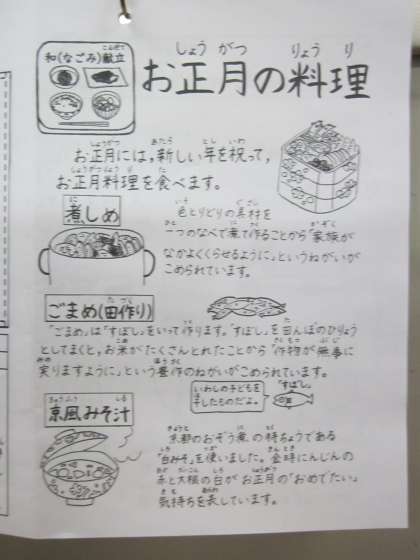 和(なごみ)献立
お正月の料理
お正月には,新しい年を祝って,
お正月料理を食べます。
煮しめ
色とりどりの具材を
一つのなべで煮て作ることから「家族が
なかよくくらせるように」というねがいが
こめられています。
ごまめ(田作り)
「ごまめ」は「すぼし」をいって作ります。「すぼし」を田んぼのひりょう
としてまくと,お米がたくさんとれたことから「作物が無事に
実りますように」という豊作のねがいがこめられています。
いわしの子どもを
干したものだよ。
「すぼし」
京風みそ汁
京都のおぞう煮の特ちょうである
「白みそ」を使いました。金時にんじんの
赤と大根の白がお正月の「おめでたい」
気持ちを表しています。